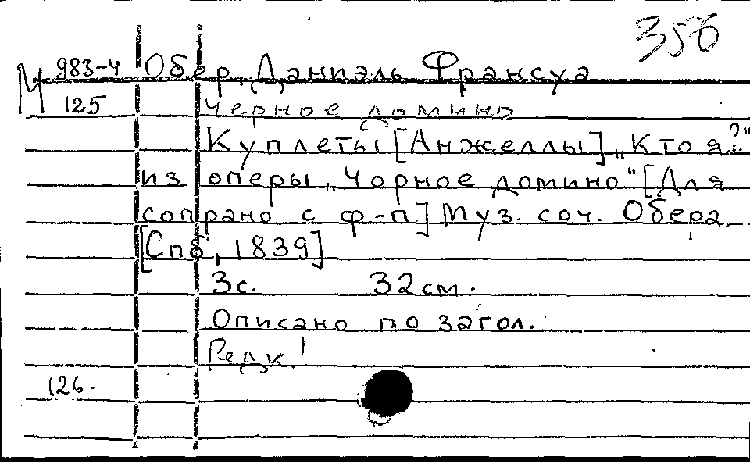 356
М 983-4 Обер, Даниэль Франсуа
125 Черное домино
Куплеты [Анжеллы] „Кто я?"
из оперы „Чорное домино" [Для
сопрано с ф-п.] Муз. соч. Обера.
[Спб, 1839]
3с. 32см.
Описано по загол.
Редк.!
126.